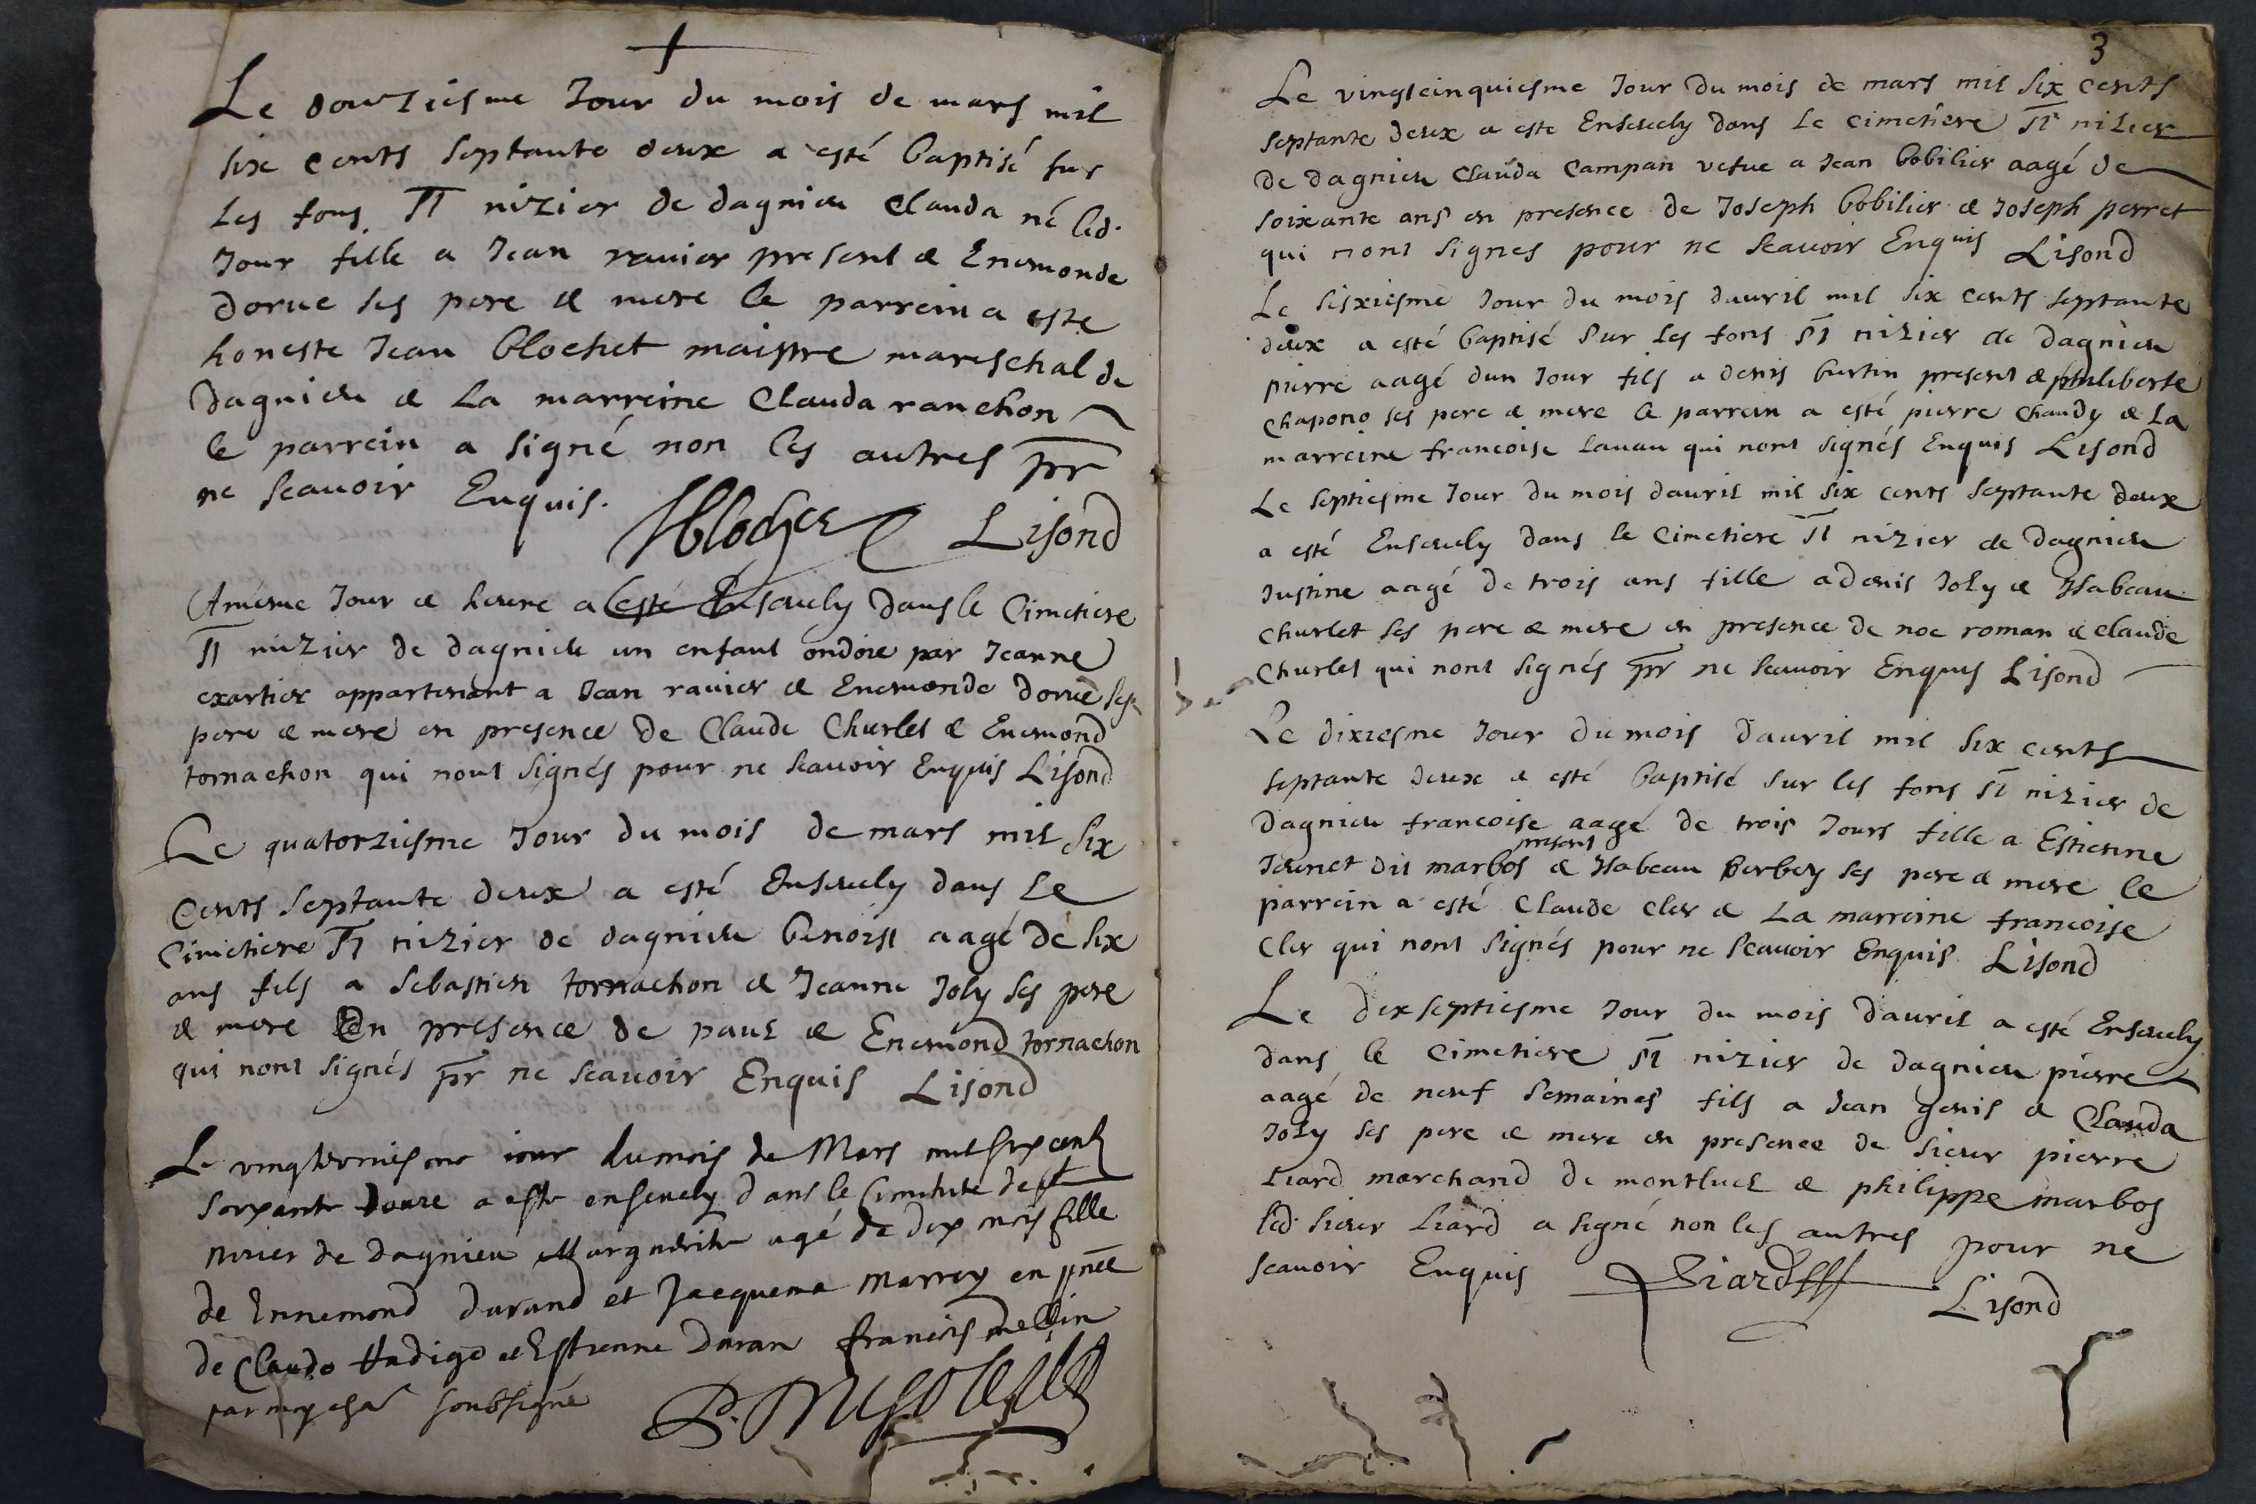 Le douziesme Jour du mois de mars mil
six cents septante deux a esté baptisé sur
les fons St nizier de dagnieu Clauda né led.
Jour fille a Jean ravier present & Enemonde
dorue ses pere & mere le parrein a este
honeste Jean blochet maistre mareschal de
Dagnieu & La marreine Clauda ranchon
le parrein a signé non les autres pr
ne scauoir Enquis.
Lisond
Jour & heure a esté Ensevely dans le Cimetiere
St nizier de dagnieu un enfant ondoie par Jeanne
exartier appartenant a Jean ravier & Enemonde dorue ses
pere & mere en presence de Claude Churlet & Enemond
tornachon qui nont signés pour ne scauoir Enquis Lisond
Le quatorziesme Jour du mois de mars mil six
cents septante deux a esté Ensevely dans Le
Cimetiere St nizier de dagnieu benoist aagé de six
ans fils a Sebastien tornachon & Jeanne Joly ses pere
& mere En presence de paul & Enemond tornachon
qui nont signés pr ne scauoir Enquis Lisond
Le vingt iour du mois de Mars mil six cent
septante doux a este enseuely dans le Cimitiere de st
nizier de dagnieu Marguerite agé de dix mois fille
de Ennemond durand et Jacquema Marrey en pnce
de Claude & Estienne Duran francois mellin
par moy soubsigné
3
Le vingtcinquiesme Jour du mois de mars mil six cents
septante deux a este Ensevely dans Le Cimetiere St nizier
de dagnieu Clauda Campan vefue a Jean bobilier aagé de
soixante ans en presence de Joseph bobilier & Joseph perret
qui nont signes pour ne scauoir Enquis Lisond
Le sisxiesme Jour du mois dauril mil six cents septante
deux a esté baptisé sur les fons St nizier de dagnieu
pierre aagé dun Jour fils a denis burtin present & philiberte
chapono ses pere & mere le parrein a esté pierre chaudy & La
marreine francoise lauau qui nont signés Enquis Lisond
Le septiesme Jour du mois dauril mil six cents septante deux
a esté Ensevely dans le Cimetiere St nizier de dagnieu
Justine aagé de trois ans fille a denis Joly & Ysabeau
churlet ses pere & mere en presence de noe roman & claude
Churlet qui nont signés pr ne scauoir Enquis Lisond
Le dixiesme Jour du mois dauril mil six cents
septante deux a esté baptisé sur les fons St nizier de
Dagnieu francoise aagé de trois Jours fille a Estienne
present
Jeunet dit marbos & Ysabeau berbey ses pere & mere le
parrein a esté Claude cler & La marreine francoise
Cler qui nont signés pour ne scauoir Enquis Lisond
Le dixseptiesme Jour du mois dauril a esté Ensevely
dans le Cimetiere St nizier de dagnieu pierre
aagé de neuf semaines fils a Jean genis & Clauda
Joly ses pere & mere en presence de sieur pierre
Liard marchand de montluel & philippe marbos
led. sieur Liard a signé non les autres pour ne
scauoir Enquis Liard
Lisond